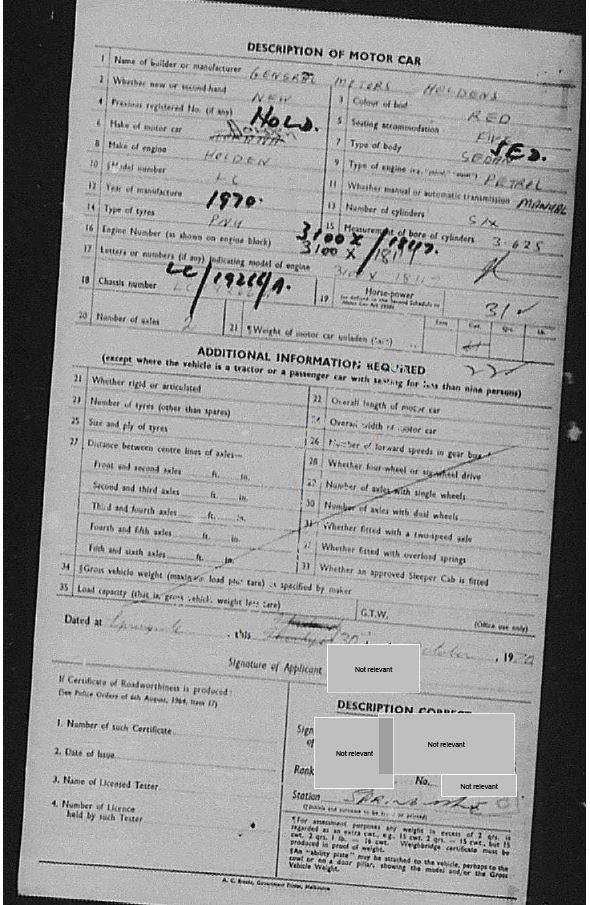 DESCRIPTION OF MOTOR CAR
1 Name of builder or manufacturer GENERAL MOTORS HOLDENS
2 Whether new or second-hand NEW
3 Colour of body RED
4 Previous registered No. (if any)
5 Seating accommodation FIVE
6 Make of motor car HOLD.
7 Type of body SEDAN SED.
8 Make of engine HOLDEN
9 Type of engine PETROL
10 §Model number LC
11 Whether manual or automatic transmission MANUAL
12 Year of manufacture 1970.
13 Number of cylinders SIX
14 Type of tyres
15 Measurement of bore of cylinders 3.625
16 Engine Number (as shown on engine block) 3100 X
17 Letters or numbers (if any) indicating model of engine
18 Chassis number
19 Horse-power
(as defined in the Second Schedule to Motor Car Act 1958)
31
20 Number of axles 2
21 ¶Weight of motor car unladen
Tons Cwt. Qrs. Lb.
ADDITIONAL INFORMATION REQUIRED
(except where the vehicle is a tractor or a passenger car with seating for less than nine persons)
21 Whether rigid or articulated
22 Overall length of motor car
23 Number of tyres (other than spares)
24 Overall width of motor car
25 Size and ply of tyres
26 Number of forward speeds in gear box
27 Distance between centre lines of axles—
28 Whether four-wheel or six-wheel drive
Front and second axles ft. in.
29 Number of axles with single wheels
Second and third axles ft. in.
30 Number of axles with dual wheels
Third and fourth axles ft. in.
31 Whether fitted with a two-speed axle
Fourth and fifth axles ft. in.
32 Whether fitted with overload springs
Fifth and sixth axles ft. in.
33 Whether an approved Sleeper Cab is fitted
34 §Gross vehicle weight (maximum load plus tare) as specified by maker
35 Load capacity (that is, gross vehicle weight less tare)
G.T.W.
(Office use only)
Dated at , this 30th October , 1970
Signature of Applicant
Not relevant
If Certificate of Roadworthiness is produced:
(See Police Orders of 6th August, 1964, Item 17)
1. Number of such Certificate
2. Date of Issue
3. Name of Licensed Tester
4. Number of Licence
held by such Tester
DESCRIPTION CORRECT
Not relevant
Not relevant
Rank
No.
Not relevant
Station
¶For assessment purposes any weight in excess of 2 qrs. is
regarded as an extra cwt., e.g., 15 cwt. 2 qrs. — 15 cwt., but 15
cwt. 2 qrs. 1 lb. — 16 cwt. Weighbridge certificate must be
produced in proof of weight.
§An "ability plate" may be attached to the vehicle, perhaps to the
cowl or on a door pillar, showing the model and/or the Gross
Vehicle Weight.
A. C. Brooks, Government Printer, Melbourne